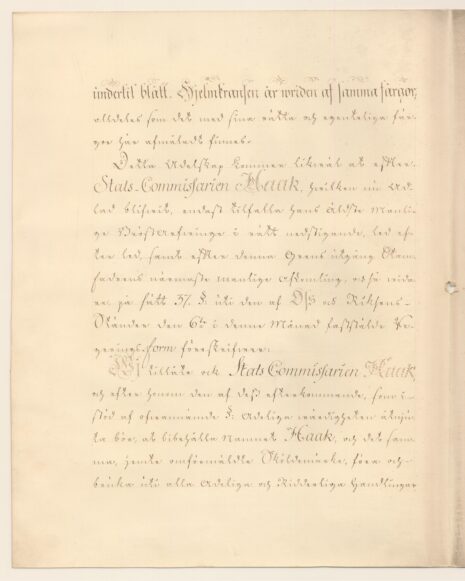 invertil blått. Hjelmkransen är wriden af samma färgor,
alldeles som det med sina rätta och egenteliga fär-
gor här afmåladt finnes.
Detta Adelskap kommer likwäl at efter
Stats-Commissarien Haak, hwilken nu Ad-
lad blifwit, endast tilfalla hans äldste Manli-
ge Bröstarfwinge i rätt nedstigande led ef-
ter led, samt efter denna Grens utgång Stam-
fadrens närmaste manlige Afkomling, och så wida-
re på sätt 37. §. uti den af Oss och Riksens
Ständer den 6te i denne Månad faststälde Re-
gerings-form föreskrifwer.
Wj tillåte ock Stats Commissarien Haak
och efter honom den af dess efterkommande, som i
stöd af ofwannämde §. Adeliga wärdigheten åtnju-
ta bör, at bibehålla Namnet Haak, och det sam-
ma, jemte omförmälde Sköldemärke, föra och
bruka uti alla Adeliga och Ridderliga Handlingar